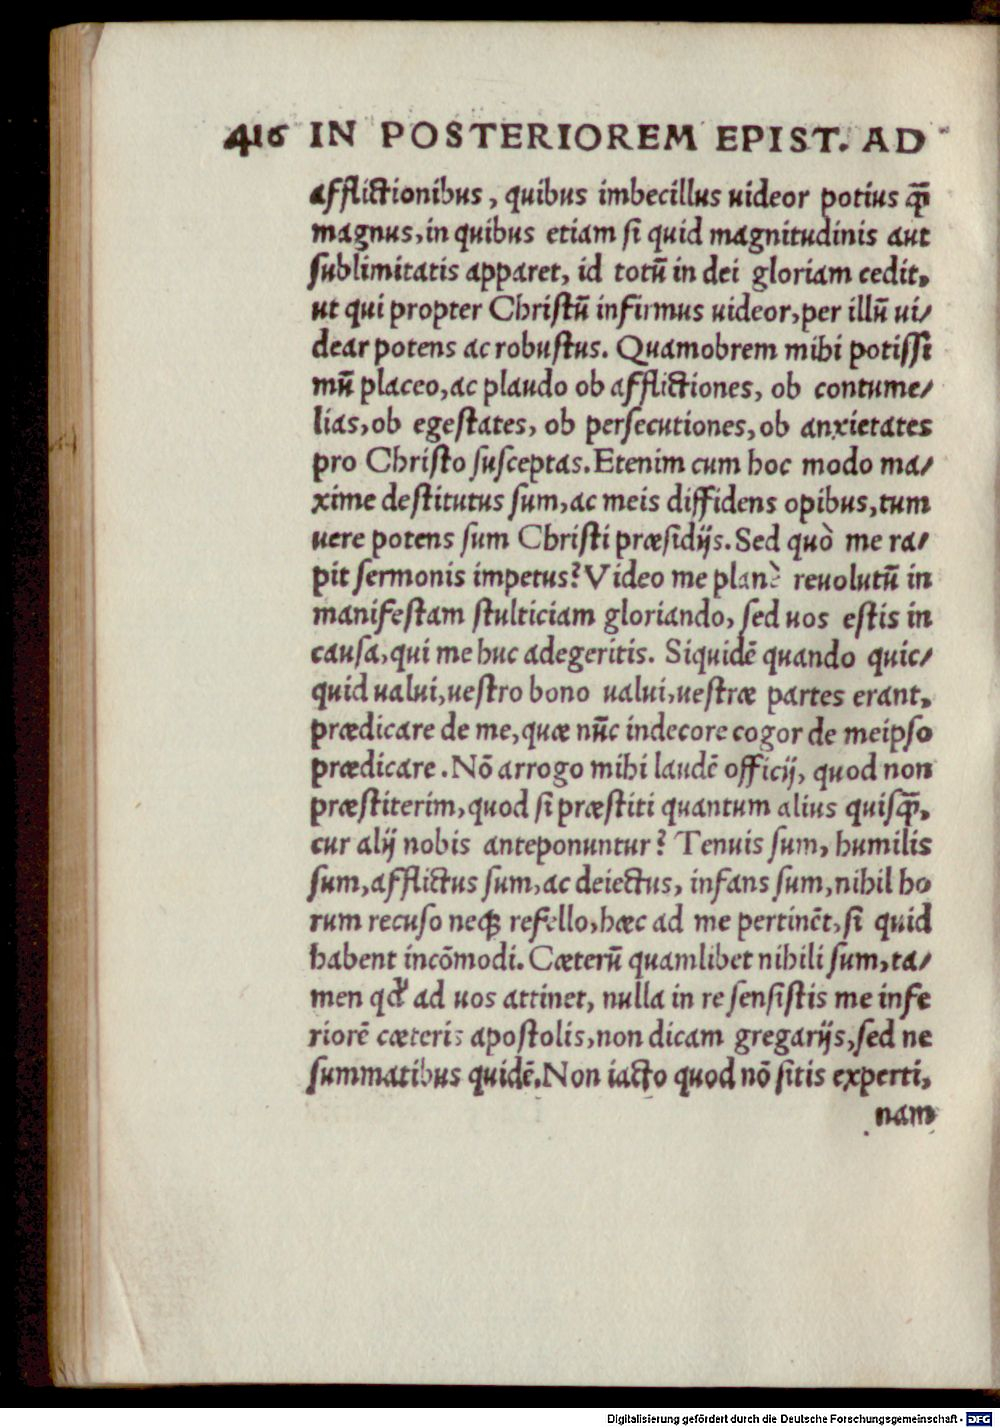 416 IN POSTERIOREM EPIST. AD
afflictionibus, quibus imbecillus uideor potius q̃
magnus, in quibus etiam si quid magnitudinis aut
sublimitatis apparet, id totũ in dei gloriam cedit,
ut qui propter Christũ infirmus uideor, per illũ ui/
dear potens ac robustus. Quamobrem mihi potissi
mũ placeo, ac plaudo ob afflictiones, ob contume/
lias, ob egestates, ob persecutiones, ob anxietates
pro Christo susceptas. Etenim cum hoc modo ma/
xime destitutus sum, ac meis diffidens opibus, tum
uere potens sum Christi præsidijs. Sed quò me ra/
pit sermonis impetus? Video me planè reuolutũ in
manifestam stulticiam gloriando, sed uos estis in
causa, qui me huc adegeritis. Siquidẽ quando quic/
quid ualui, uestro bono ualui, uestræ partes erant,
prædicare de me, quæ nũc indecore cogor de meipso
prædicare. Nõ arrogo mihi laudẽ officij, quod non
præstiterim, quod si præstiti quantum alius quisq̃,
cur alij nobis anteponuntur? Tenuis sum, humilis
sum, afflictus sum, ac deiectus, infans sum, nihil ho
rum recuso neqꝫ refello, hæc ad me pertinẽt, si quid
habent incõmodi. Cæterũ quamlibet nihili sum, ta/
men qđ ad uos attinet, nulla in re sensistis me infe
riorẽ cæteris apostolis, non dicam gregarijs, sed ne
summatibus quidẽ. Non iacto quod nõ sitis experti,
nam
Digitalisierung gefördert durch die Deutsche Forschungsgemeinschaft - DFG